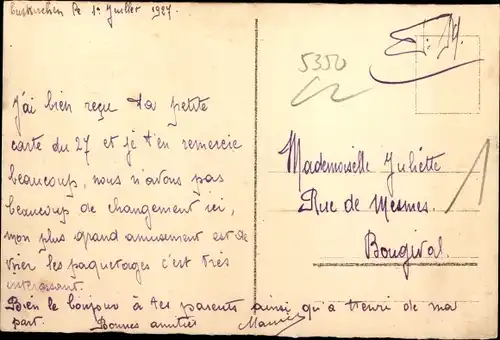 Euskirchen le 1er Juillet 1927
J'ai bien reçu ta petite
carte du 27 et je t'en remercie
beaucoup, nous n'avons pas
beaucoup de changement ici,
mon plus grand amusement est de
vier les paquetages c'est très
intéressant.
Bien le bonjour à tes parents ainsi qu'a Henri de ma
part. Bonnes amitiés
F. M.
5350
Mademoiselle Juliette
Rue de Mesmes.
Bougival.
1